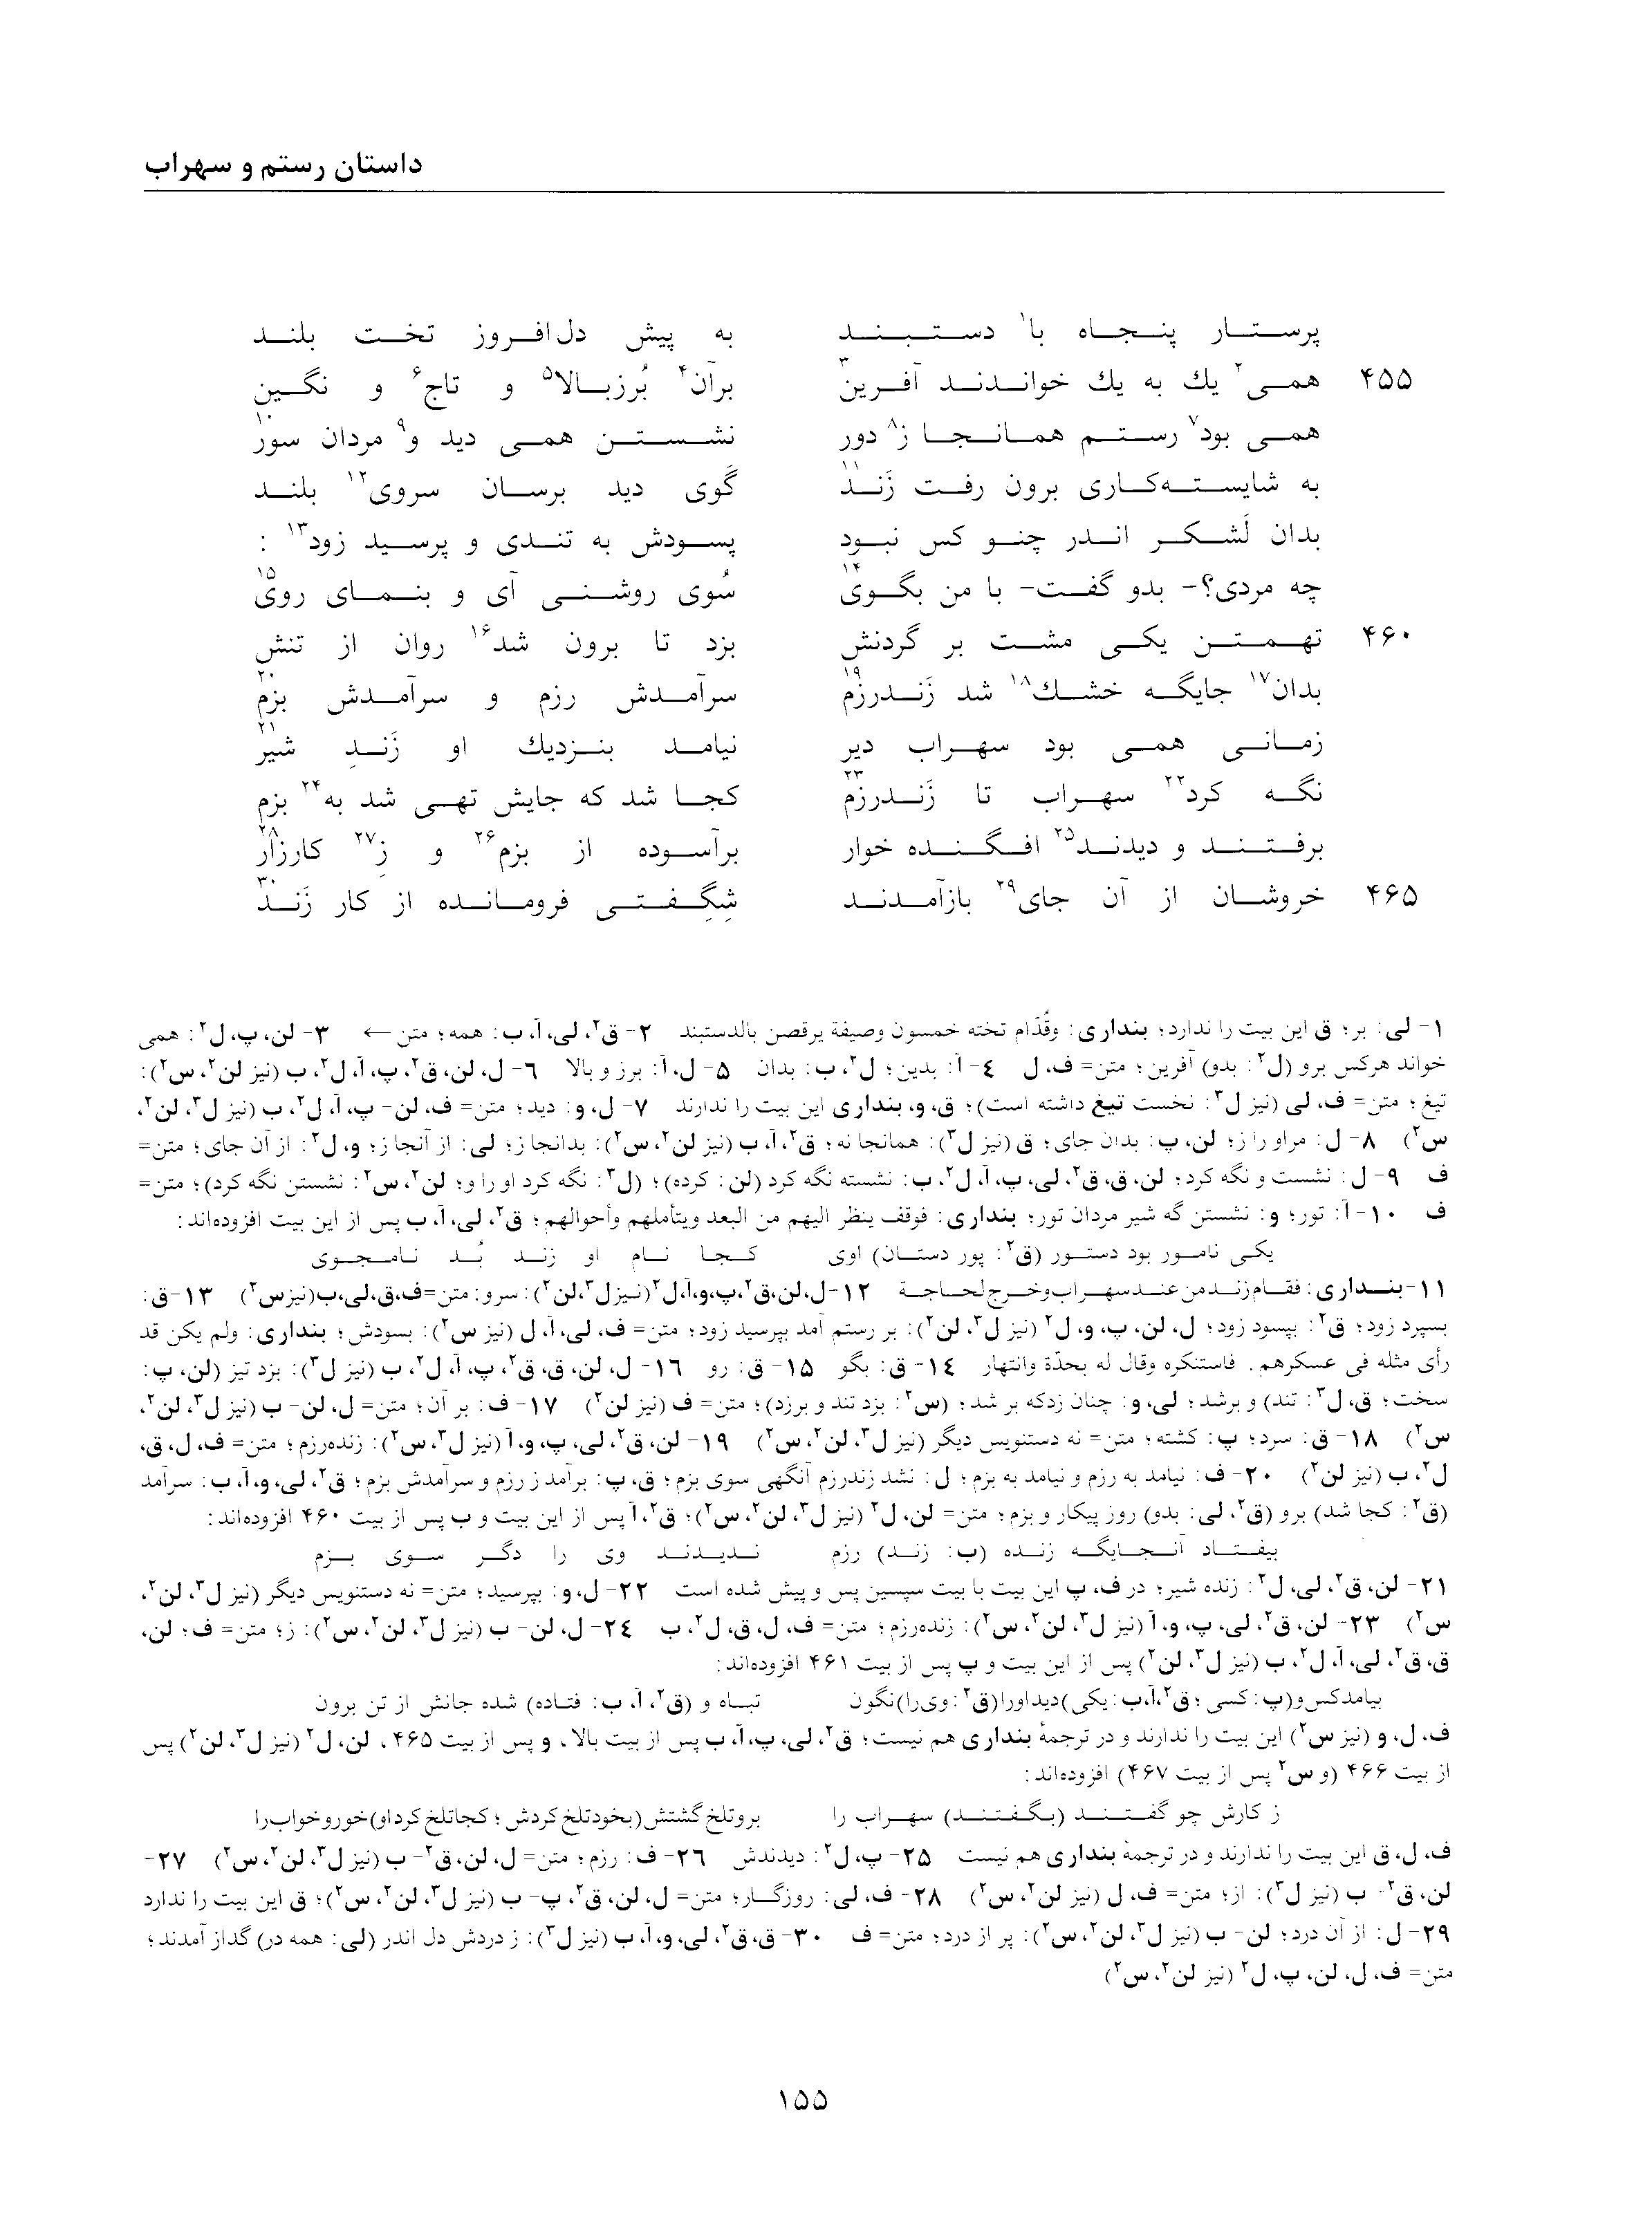 داستان رستم و سهراب
پرستار پنجاه با۱ دستبند به پیش دل‌افروز تخت بلند
۴۵۵ همی۲ یك به یك خواندند آفرین۳ برآن۴ بُرزبالا۵ و تاج۶ و نگین
همی بود۷ رستم همانجا ز۸ دور نشستن همی دید و۹ مردان سور۱۰
به شایسته‌کاری برون رفت زَند۱۱ گَوی دید برسان سروی۱۲ بلند
بدان لَشکر اندر چنو کس نبود پسودش به تندی و پرسید زود۱۳ :
چه مردی؟- بدو گفت- با من بگوی۱۴ سُوی روشنی آی و بنمای روی۱۵
۴۶۰ تهمتن یکی مشت بر گردنش بزد تا برون شد۱۶ روان از تنش
بدان۱۷ جایگه خشك۱۸ شد زَندرزم۱۹ سرآمدش رزم و سرآمدش بزم۲۰
زمانی همی بود سهراب دیر نیامد بنزدیك او زَندِ شیر۲۱
نگه کرد۲۲ سهراب تا زَندرزم۲۳ کجا شد که جایش تهی شد به۲۴ بزم
برفتند و دیدند۲۵ افگنده خوار برآسوده از بزم۲۶ و زِ۲۷ کارزار۲۸
۴۶۵ خروشان از آن جای۲۹ بازآمدند شِگِفتی فرومانده از کار زَند۳۰
۱- لی: بر؛ ق این بیت را ندارد؛ بنداری: وقُدّام تخته خمسون وصیفة یرقصن بالدستبند ۲- ق۲، لی، آ، ب: همه؛ متن ← ۳- لن، پ، ل۲: همی
خواند هرکس برو (ل۲: بدو) آفرین؛ متن= ف، ل ٤- آ: بدین؛ ل۲، ب: بدان ۵- ل، آ: برز و بالا ٦- ل، لن، ق۲، پ، آ، ل۲، ب (نیز لن۲، س۲):
تیغ؛ متن= ف، لی (نیز ل۳: نخست تیغ داشته است)؛ ق، و، بنداری این بیت را ندارند ۷- ل، و: دید؛ متن= ف، لن- پ، آ، ل۲، ب (نیز ل۳، لن۲،
س۲) ۸- ل: مراو را ز؛ لن، پ: بدان جای؛ ق (نیز ل۳): همانجا نه؛ ق۲، آ، ب (نیز لن۲، س۲): بدانجا ز؛ لی: از آنجا ز؛ و، ل۲: از آن جای؛ متن=
ف ۹- ل: نشست و نگه کرد؛ لن، ق، ق۲، لی، پ، آ، ل۲، ب: نشسته نگه کرد (لن: کرده)؛ (ل۳: نگه کرد او را و؛ لن۲، س۲: نشستن نگه کرد)؛ متن=
ف ۱۰- آ: تور؛ و: نشستن گه شیر مردان تور؛ بنداری: فوقف ینظر الیهم من البعد ویتأملهم وأحوالهم؛ ق۲، لی، آ، ب پس از این بیت افزوده‌اند:
یکی نامور بود دستور (ق۲: پور دستان) اوی کجا نام او زند بُد نامجوی
۱۱- بنداری: فقام زند من عند سهراب وخرج لحاجة ۱۲- ل، لن، ق۲، پ، و، آ، ل۲ (نیز ل۳، لن۲): سرو؛ متن= ف، ق، لی، ب (نیز س۲) ۱۳- ق:
بسپرد زود؛ ق۲: بپسود زود؛ ل، لن، پ، و، ل۲ (نیز ل۳، لن۲): بر رستم آمد بپرسید زود؛ متن= ف، لی، آ، ل (نیز س۲): بسودش؛ بنداری: ولم یکن قد
رأی مثله فی عسکرهم. فاستنکره وقال له بحدّة وانتهار ١٤- ق: بگو ۱۵- ق: رو ١٦- ل، لن، ق، ق۲، پ، آ، ل۲، ب (نیز ل۳): بزد تیز (لن، پ:
سخت؛ ق، ل۳: تند) و برشد؛ لی، و: چنان زدکه بر شد؛ (س۲: بزد تند و برزد)؛ متن= ف (نیز لن۲) ۱۷- ف: بر آن؛ متن= ل، لن- ب (نیز ل۳، لن۲،
س۲) ۱۸- ق: سرد؛ پ: کشته؛ متن= نه دستنویس دیگر (نیز ل۳، لن۲، س۲) ۱۹- لن، ق۲، لی، پ، و، آ (نیز ل۳، س۲): زنده‌رزم؛ متن= ف، ل، ق،
ل۲، ب (نیز لن۲) ۲۰- ف: نیامد به رزم و نیامد به بزم؛ ل: نشد زندرزم آنگهی سوی بزم؛ ق، پ: برآمد ز رزم و سرآمدش بزم؛ ق۲، لی، و، آ، ب: سرآمد
(ق۲: کجا شد) برو (ق۲، لی: بدو) روز پیکار و بزم؛ متن= لن، ل۲ (نیز ل۳، لن۲، س۲)؛ ق۲، آ پس از این بیت و ب پس از بیت ۴۶۰ افزوده‌اند:
بیفتاد آنجایگه زنده (ب: زند) رزم ندیدند وی را دگر سوی بزم
۲۱- لن، ق۲، لی، ل۲: زنده شیر؛ در ف، پ این بیت با بیت سپسین پس و پیش شده است ۲۲- ل، و: بپرسید؛ متن= نه دستنویس دیگر (نیز ل۳، لن۲،
س۲) ۲۳- لن، ق۲، لی، پ، و، آ (نیز ل۳، لن۲، س۲): زنده‌رزم؛ متن= ف، ل، ق، ل۲، ب ٢٤- ل، لن- ب (نیز ل۳، لن۲، س۲): ز؛ متن= ف؛ لن،
ق، ق۲، لی، آ، ل۲، ب (نیز ل۳، لن۲) پس از این بیت و پ پس از بیت ۴۶۱ افزوده‌اند:
بیامد کس و (پ: کسی؛ ق۲، آ، ب: یکی) دید او را (ق۲: وی را) نگون تباه و (ق۲، آ، ب: فتاده) شده جانش از تن برون
ف، ل، و (نیز س۲) این بیت را ندارند و در ترجمهٔ بنداری هم نیست؛ ق۲، لی، پ، آ، ب پس از بیت بالا، و پس از بیت ۴۶۵، لن، ل۲ (نیز ل۳، لن۲) پس
از بیت ۴۶۶ (و س۲ پس از بیت ۴۶۷) افزوده‌اند:
ز کارش چو گفتند (بگفتند) سهراب را برو تلخ گشتش (بخود تلخ کردش؛ کجا تلخ کرد او) خور و خواب را
ف، ل، ق این بیت را ندارند و در ترجمهٔ بنداری هم نیست ۲۵- پ، ل۲: دیدندش ٢٦- ف: رزم؛ متن= ل، لن، ق۲- ب (نیز ل۳، لن۲، س۲) ۲۷-
لن، ق۲- ب (نیز ل۳): از؛ متن= ف، ل (نیز لن۲، س۲) ۲۸- ف، لی: روزگار؛ متن= ل، لن، ق۲، پ- ب (نیز ل۳، لن۲، س۲)؛ ق این بیت را ندارد
۲۹- ل: از آن درد؛ لن- ب (نیز ل۳، لن۲، س۲): پر از درد؛ متن= ف ۳۰- ق، ق۲، لی، و، آ، ب (نیز ل۳): ز دردش دل اندر (لی: همه در) گداز آمدند؛
متن= ف، ل، لن، پ، ل۲ (نیز لن۲، س۲)
۱۵۵